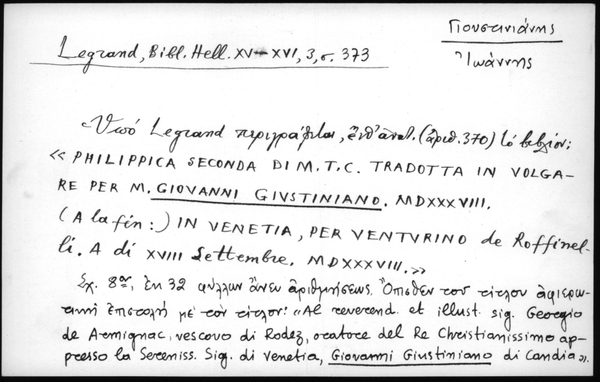 Γιουστινιάνης
Ἰωάννης
Legrand, Bibl. Hell. XV-XVI, 3, σ. 373
Ὑπό Legrand περιγράφεται, ἐνθ' ἀνωτ. (ἀριθ. 370) τό βιβλίον:
« PHILIPPICA SECONDA DI M. T. C. TRADOTTA IN VOLGA-
RE PER M. GIOVANNI GIVSTINIANO. MDXXXVIII.
(A la fin:) IN VENETIA, PER VENTVRINO de Roffinel-
li. A di XVIII Settembre. MDXXXVIII. »
Σχ. 8ον, ἐκ 32 φύλλων ἄνευ ἀριθμήσεως. Ὄπισθεν του τίτλου ἀφιερω-
τική ἐπιστολή μέ τον τίτλον: "Al reverend. et illust. sig. Georgio
de Armignac, vescovo di Rodez, oratore del Re Christianissimo ap-
presso la Sereniss. Sig. di Venetia, Giovanni Giustiniano di Candia".